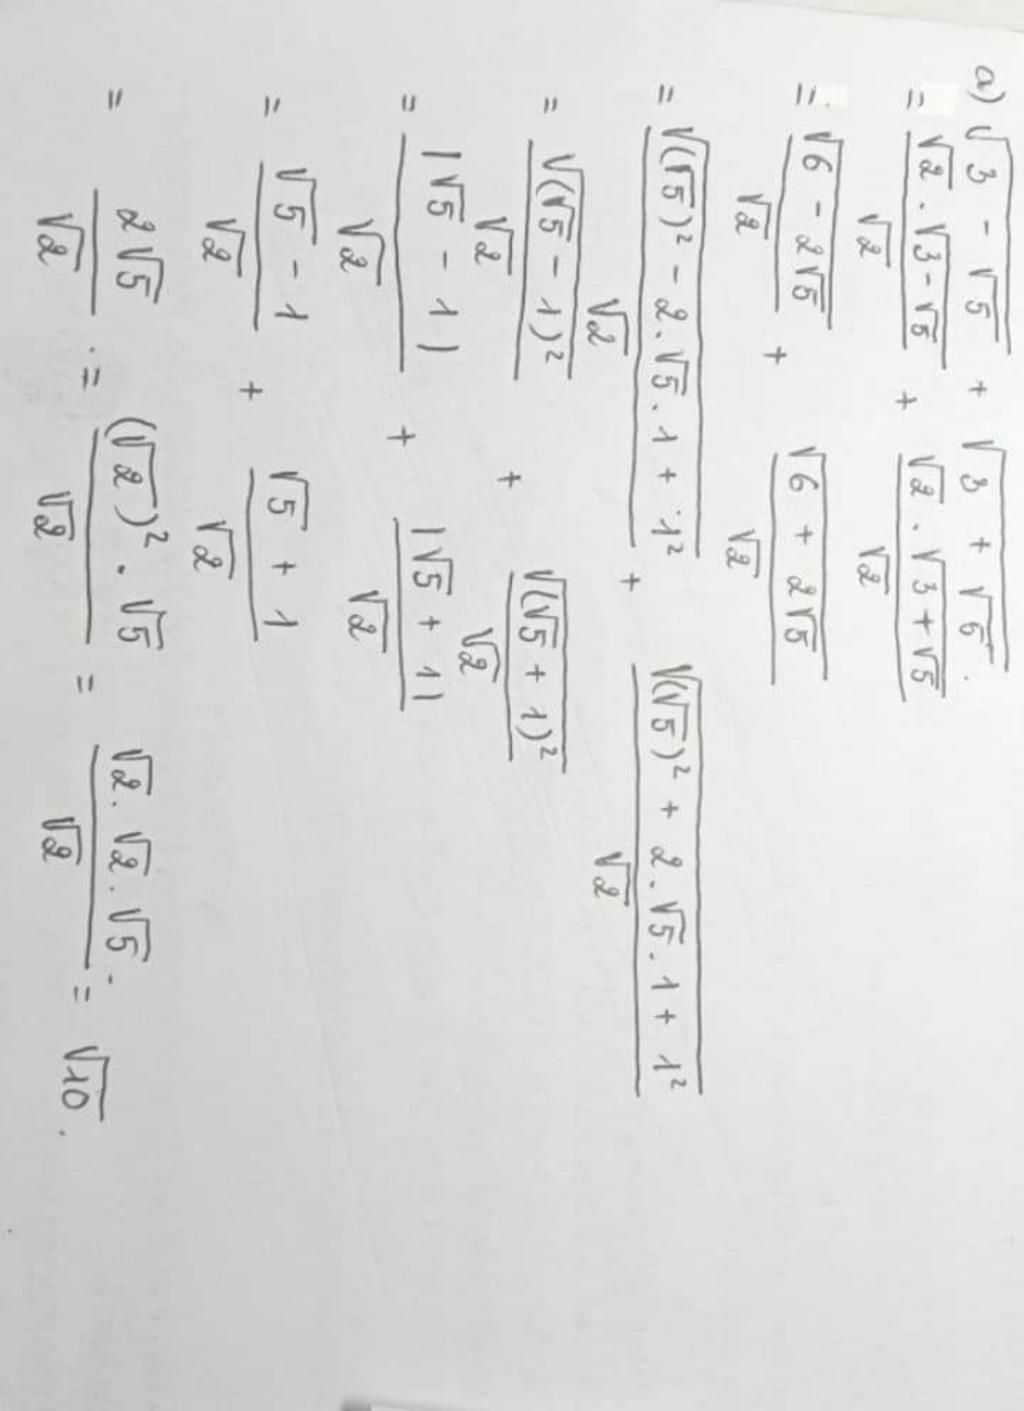 a) √(3 - √5) + √(3 + √5).
= (√2 . √(3-√5))/√2 + (√2 . √(3+√5))/√2
= √(6 - 2√5)/√2 + √(6 + 2√5)/√2
= √((√5)² - 2.√5.1 + 1²)/√2 + √((√5)² + 2.√5.1 + 1²)/√2
= √((√5 - 1)²)/√2 + √((√5 + 1)²)/√2
= |√5 - 1|/√2 + |√5 + 1|/√2
= (√5 - 1)/√2 + (√5 + 1)/√2
= 2√5/√2 = ((√2)² . √5)/√2 = (√2.√2.√5)/√2 = √10.